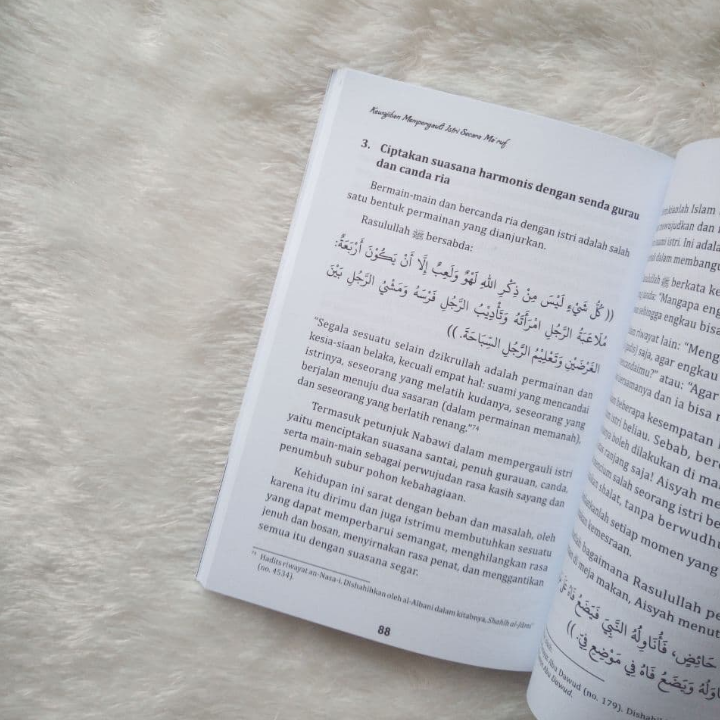 Kewajiban Mempergauli Istri Secara Ma'ruf
3. Ciptakan suasana harmonis dengan senda gurau
dan canda ria
Bermain-main dan bercanda ria dengan istri adalah salah
satu bentuk permainan yang dianjurkan.
Rasulullah ﷺ bersabda:
(( كُلُّ شَيْءٍ لَيْسَ مِنْ ذِكْرِ اللهِ لَهْوٌ وَلَعِبٌ إِلَّا أَنْ يَكُوْنَ أَرْبَعَةٌ:
مُلَاعَبَةُ الرَّجُلِ امْرَأَتَهُ وَتَأْدِيْبُ الرَّجُلِ فَرَسَهُ وَمَشْيُ الرَّجُلِ بَيْنَ
الغَرَضَيْنِ وَتَعْلِيْمُ الرَّجُلِ السِّبَاحَةَ. ))
"Segala sesuatu selain dzikrullah adalah permainan dan
kesia-siaan belaka, kecuali empat hal: suami yang mencandai
istrinya, seseorang yang melatih kudanya, seseorang yang
berjalan menuju dua sasaran (dalam permainan memanah),
dan seseorang yang berlatih renang."⁷⁴
Termasuk petunjuk Nabawi dalam mempergauli istri
yaitu menciptakan suasana santai, penuh gurauan, canda,
serta main-main sebagai perwujudan rasa kasih sayang dan
penumbuh subur pohon kebahagiaan.
Kehidupan ini sarat dengan beban dan masalah, oleh
karena itu dirimu dan juga istrimu membutuhkan sesuatu
yang dapat memperbarui semangat, menghilangkan rasa
jenuh dan bosan, menyirnakan rasa penat, dan menggantikan
semua itu dengan suasana segar.
⁷⁴ Hadits riwayat an-Nasa-i. Dishahihkan oleh al-Albani dalam kitabnya, Shahih al-Jâmi'
(no. 4534).
88
Islam
wujudkan dan
suami istri. Ini adalah
dalam membangun
ﷺ berkata
"Mengapa
sehingga engkau bisa
riwayat lain:
saja, agar engkau
atau: "Agar
bersamanya dan ia bisa
beberapa kesempatan
istri beliau. Sebab,
boleh dilakukan di
ranjang saja! Aisyah
salah seorang istri
shalat, tanpa berwudhu
setiap momen yang
kemesraan.
bagaimana Rasulullah
di meja makan, Aisyah
حَائِضٌ، فَأُنَاوِلُهُ النَّبِيَّ فَيَضَعُ فَاهُ
وَيَضَعُ فَاهُ فِي مَوْضِعِ فِيَّ. ))
Abu Dawud (no. 179).
Abu Dawud.